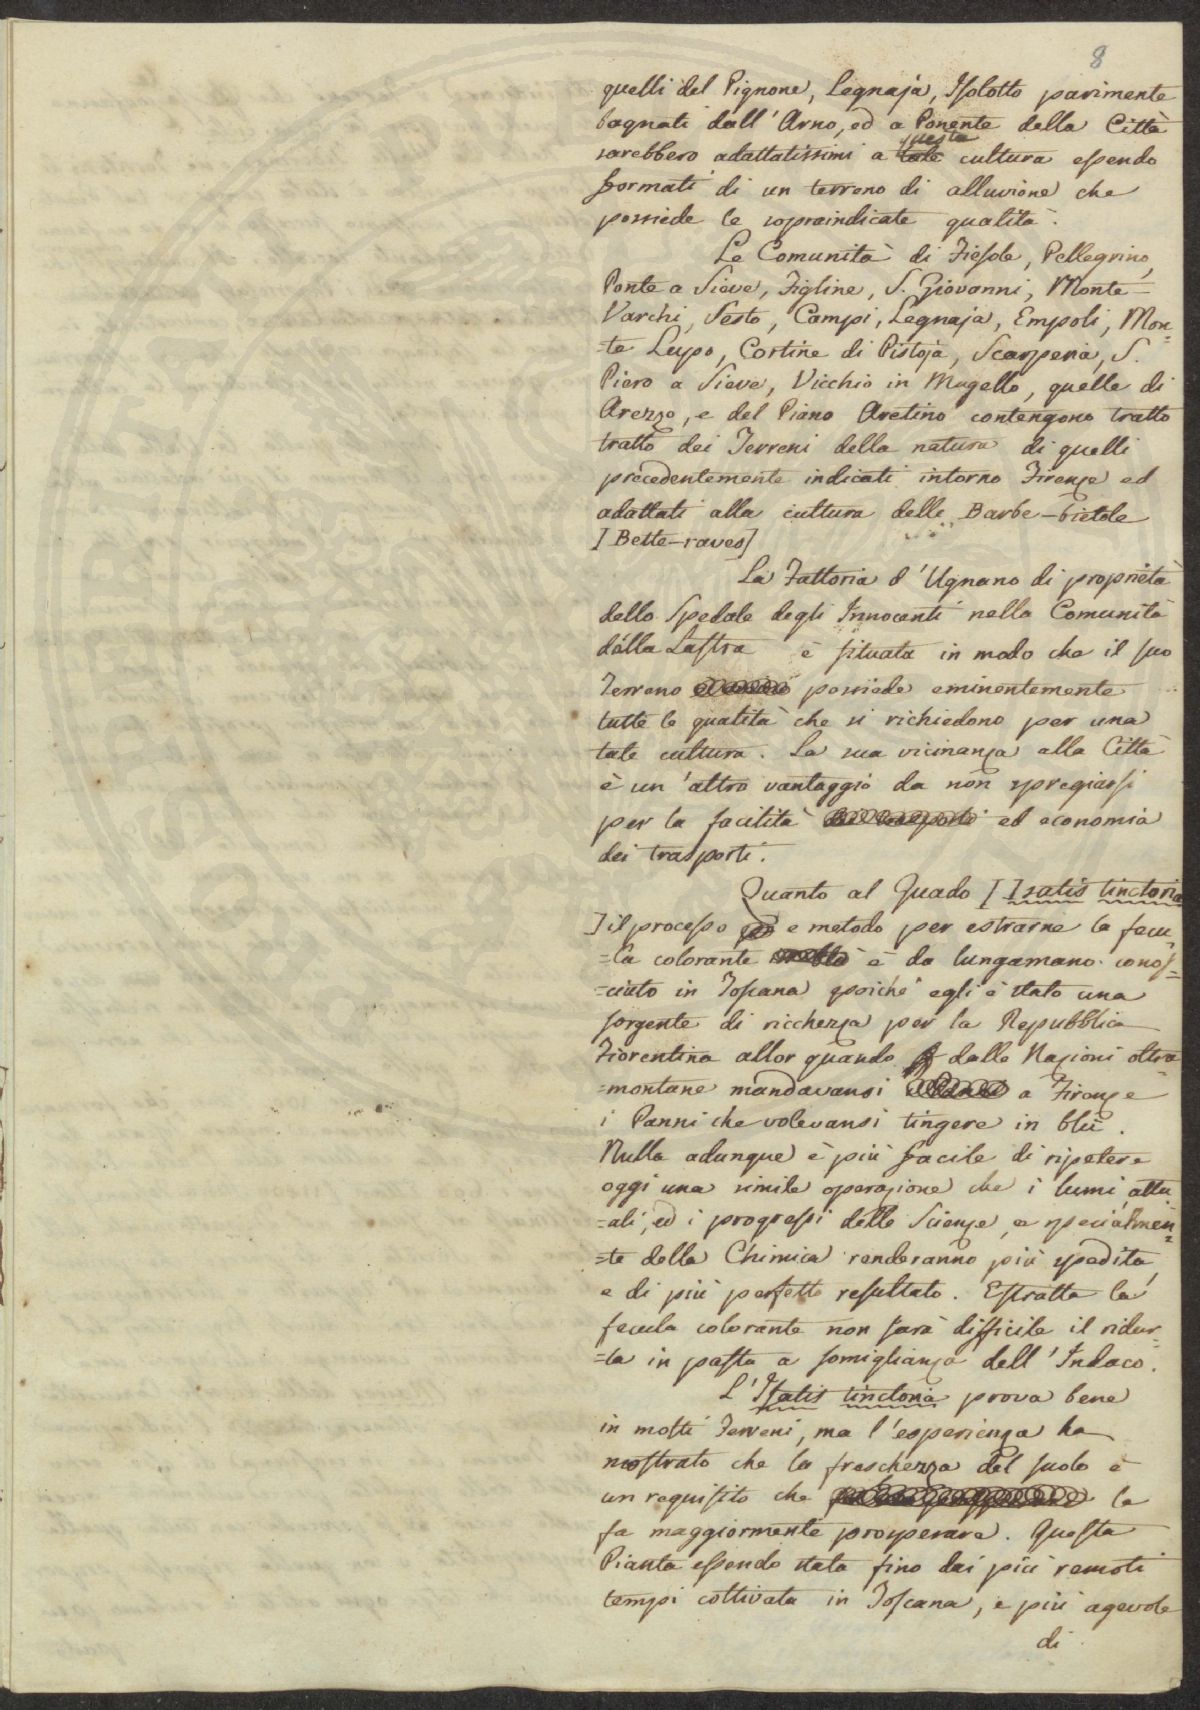 8
quelli del Pignone, Legnaja, Isolotto parimente
bagnati dall'Arno, ed a Ponente della Città
questa
sarebbero adattatissimi a tale cultura essendo
formati di un terreno di alluvione che
possiede le sopraindicate qualità.
Le Comunità di Fiesole, Pellegrino,
Ponte a Sieve, Figline, S. Giovanni, Monte-
Varchi, Sesto, Campi, Legnaja, Empoli, Mon=
=te Lupo, Cortine di Pistoja, Scarperia, S.
Piero a Sieve, Vicchio in Mugello, quelle di
Arezzo, e del Piano Aretino contengono tratto
tratto dei Terreni della natura di quelli
precedentemente indicati intorno Firenze ed
adattati alla cultura delle Barbe-bietole
[Bette-raves]
La Fattoria d'Ugnano di proprietà
dello Spedale degli Innocenti nella Comunità
della Lastra è situata in modo che il suo
Terreno possiede eminentemente
tutte le qualità che si richiedono per una
tale cultura. La sua vicinanza alla Città
è un'altro vantaggio da non spregiarsi
per la facilità dei trasporti ed economia
dei trasporti.
Quanto al Guado [Isatis tinctoria
] il processo e metodo per estrarne la fecu=
=la colorante è da lungamano conos=
=ciuto in Toscana poichè egli è stato una
sorgente di ricchezza per la Repubblica
Fiorentina allor quando dalle Nazioni oltra=
=montane mandavansi a Firenze
i Panni che volevansi tingere in blù.
Nulla adunque è più facile di ripetere
oggi una simile operazione che i lumi attu=
=ali, ed i progressi delle Scienze, e specialmen=
=te della Chimica renderanno più spedita,
e di più perfetto resultato. Estratta la
fecula colorante non sarà difficile il ridur=
=la in pasta a somiglianza dell'Indaco.
L'Isatis tinctoria prova bene
in molti Terreni, ma l'esperienza ha
mostrato che la freschezza del suolo è
un requisito che la
fa maggiormente prosperare. Questa
Pianta essendo stata fino dai più remoti
tempi coltivata in Toscana, è più agevole
di